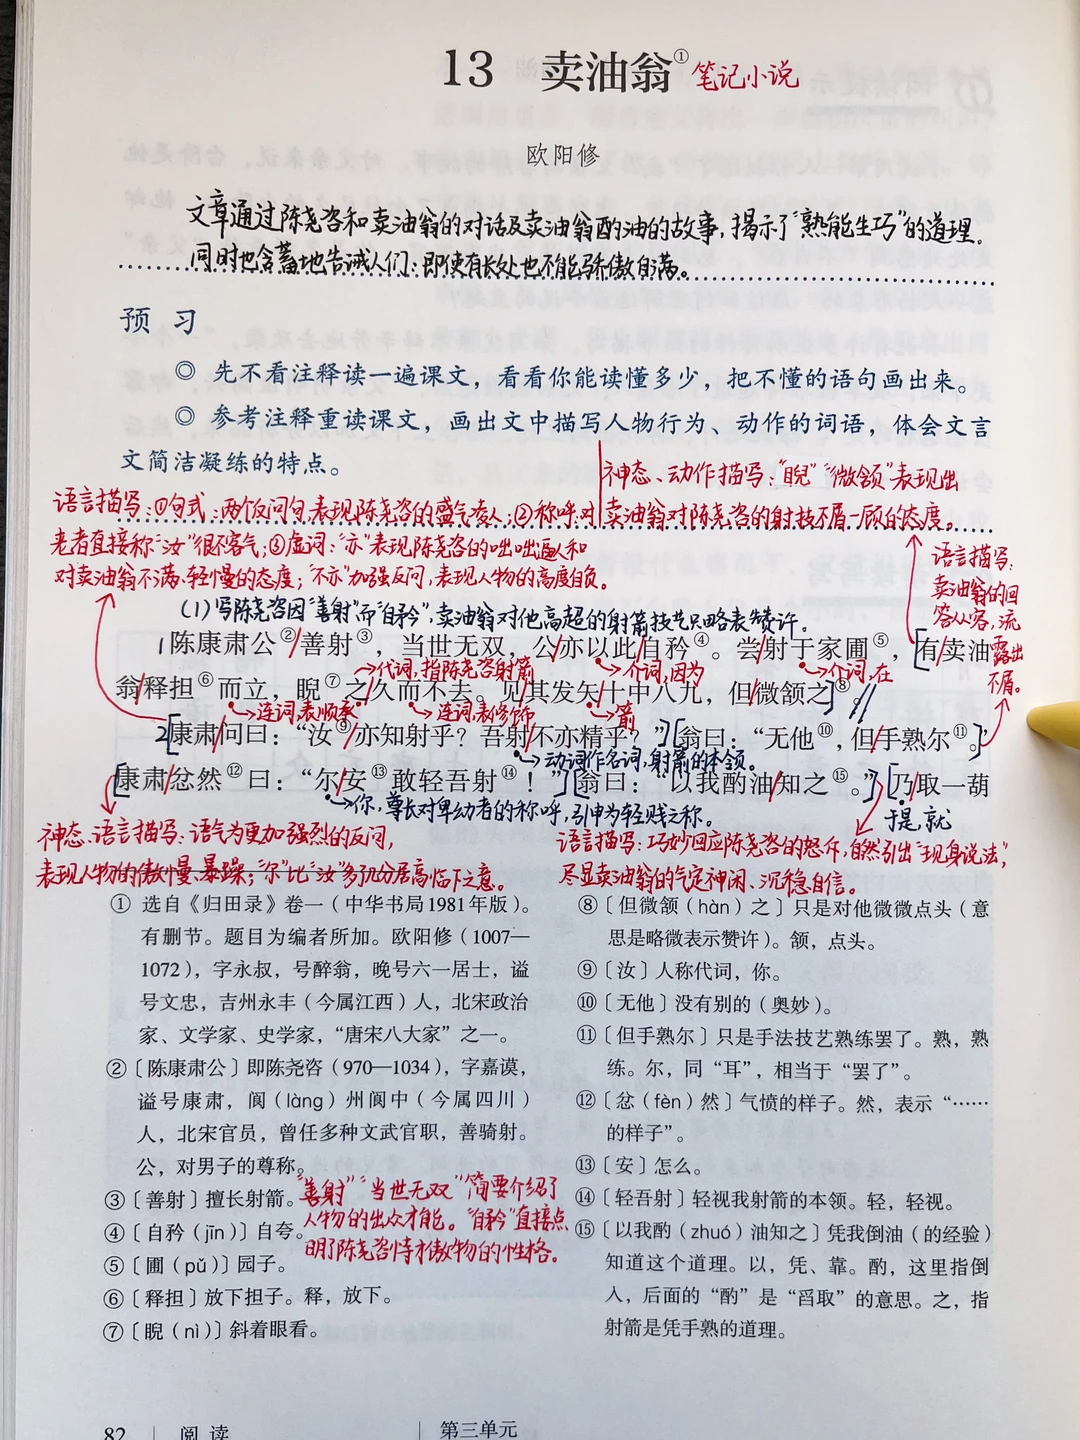 13 卖油翁① 笔记小说
欧阳修
文章通过陈尧咨和卖油翁的对话及卖油翁酌油的故事，揭示了“熟能生巧”的道理。
同时也含蓄地告诫人们：即使有长处也不能骄傲自满。
预 习
◎ 先不看注释读一遍课文，看看你能读懂多少，把不懂的语句画出来。
◎ 参考注释重读课文，画出文中描写人物行为、动作的词语，体会文言
文简洁凝练的特点。
神态、动作描写：“睨”“微颔”表现出
卖油翁对陈尧咨的射技不屑一顾的态度。
语言描写：①句式：两个反问句，表现陈尧咨的盛气凌人；②称呼：对
老者直接称“汝”很不客气；③虚词：“亦”表现陈尧咨的咄咄逼人和
对卖油翁不满、轻慢的态度；“不亦”加强反问，表现人物的高度自负。
语言描写：
卖油翁的回
答从容，流
露出
不屑。
(1)写陈尧咨因“善射”而“自矜”，卖油翁对他高超的射箭技艺只略表赞许。
1陈康肃公②/善射③，当世无双，公/亦以此/自矜④。尝/射于家圃⑤，[有/卖油
代词，指陈尧咨射箭
介词，因为
介词，在
翁/释担⑥而立，睨⑦之/久而不去。见/其发矢/十中八九，但/微颔之]⑧//
连词，表顺承
连词，表修饰
箭
2[康肃/问曰：“汝⑨/亦知射乎？吾射/不亦精乎？”][翁曰：“无他⑩，但/手熟尔⑪。”]
动词作名词，射箭的本领。
[康肃/忿然⑫曰：“尔/安⑬敢轻吾射⑭！”][翁曰：“以我酌油/知之⑮。”][乃/取一葫
你，尊长对卑幼者的称呼，引申为轻贱之称。
于是，就
神态、语言描写：语气为更加强烈的反问，
表现人物的傲慢、暴躁；“尔”比“汝”多了几分居高临下之意。
语言描写：巧妙回应陈尧咨的怒斥，自然引出“现身说法”，
尽显卖油翁的气定神闲、沉稳自信。
① 选自《归田录》卷一（中华书局1981年版）。
有删节。题目为编者所加。欧阳修（1007—
1072），字永叔，号醉翁，晚号六一居士，谥
号文忠，吉州永丰（今属江西）人，北宋政治
家、文学家、史学家，“唐宋八大家”之一。
②〔陈康肃公〕即陈尧咨（970—1034），字嘉谟，
谥号康肃，阆（làng）州阆中（今属四川）
人，北宋官员，曾任多种文武官职，善骑射。
公，对男子的尊称。
③〔善射〕擅长射箭。
④〔自矜（jīn）〕自夸。
⑤〔圃（pǔ）〕园子。
⑥〔释担〕放下担子。释，放下。
⑦〔睨（nì）〕斜着眼看。
“善射”“当世无双”简要介绍了
人物的出众才能。“自矜”直接点
明了陈尧咨恃才傲物的性格。
⑧〔但微颔（hàn）之〕只是对他微微点头（意
思是略微表示赞许）。颔，点头。
⑨〔汝〕人称代词，你。
⑩〔无他〕没有别的（奥妙）。
⑪〔但手熟尔〕只是手法技艺熟练罢了。熟，熟
练。尔，同“耳”，相当于“罢了”。
⑫〔忿（fèn）然〕气愤的样子。然，表示“……
的样子”。
⑬〔安〕怎么。
⑭〔轻吾射〕轻视我射箭的本领。轻，轻视。
⑮〔以我酌（zhuó）油知之〕凭我倒油（的经验）
知道这个道理。以，凭、靠。酌，这里指倒
入，后面的“酌”是“舀取”的意思。之，指
射箭是凭手熟的道理。
82 | 阅 读 | 第三单元